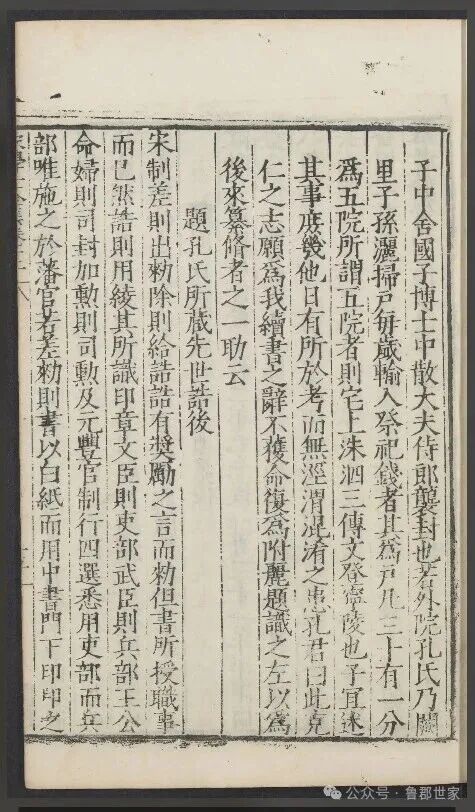 子中舍國子博士中散大夫侍郎襲封也若外院孔氏乃闕
里子孫灑掃戶每歲輸入祭祀錢者其爲戶凡三十有一分
爲五院所謂五院者則宅上洙泗三傳文登寧陵也子宜述
其事庻幾他日有所於考而無涇渭混淆之患孔君曰此克
仁之志願爲我續書之辭不獲命復爲附麗題識之左以爲
後來纂脩者之一助云
題孔氏所藏先世誥後
宋制差則出勑除則給誥誥有奬勵之言而勑但書所授職事
而已然誥則用綾其所識印章文臣則吏部武臣則兵部王公
命婦則司封加勲則司勲及元豐官制行四選悉用吏部而兵
部唯施之於藩官若差勑則書以白紙而用中書門下印印之
公众号·鲁郡世家